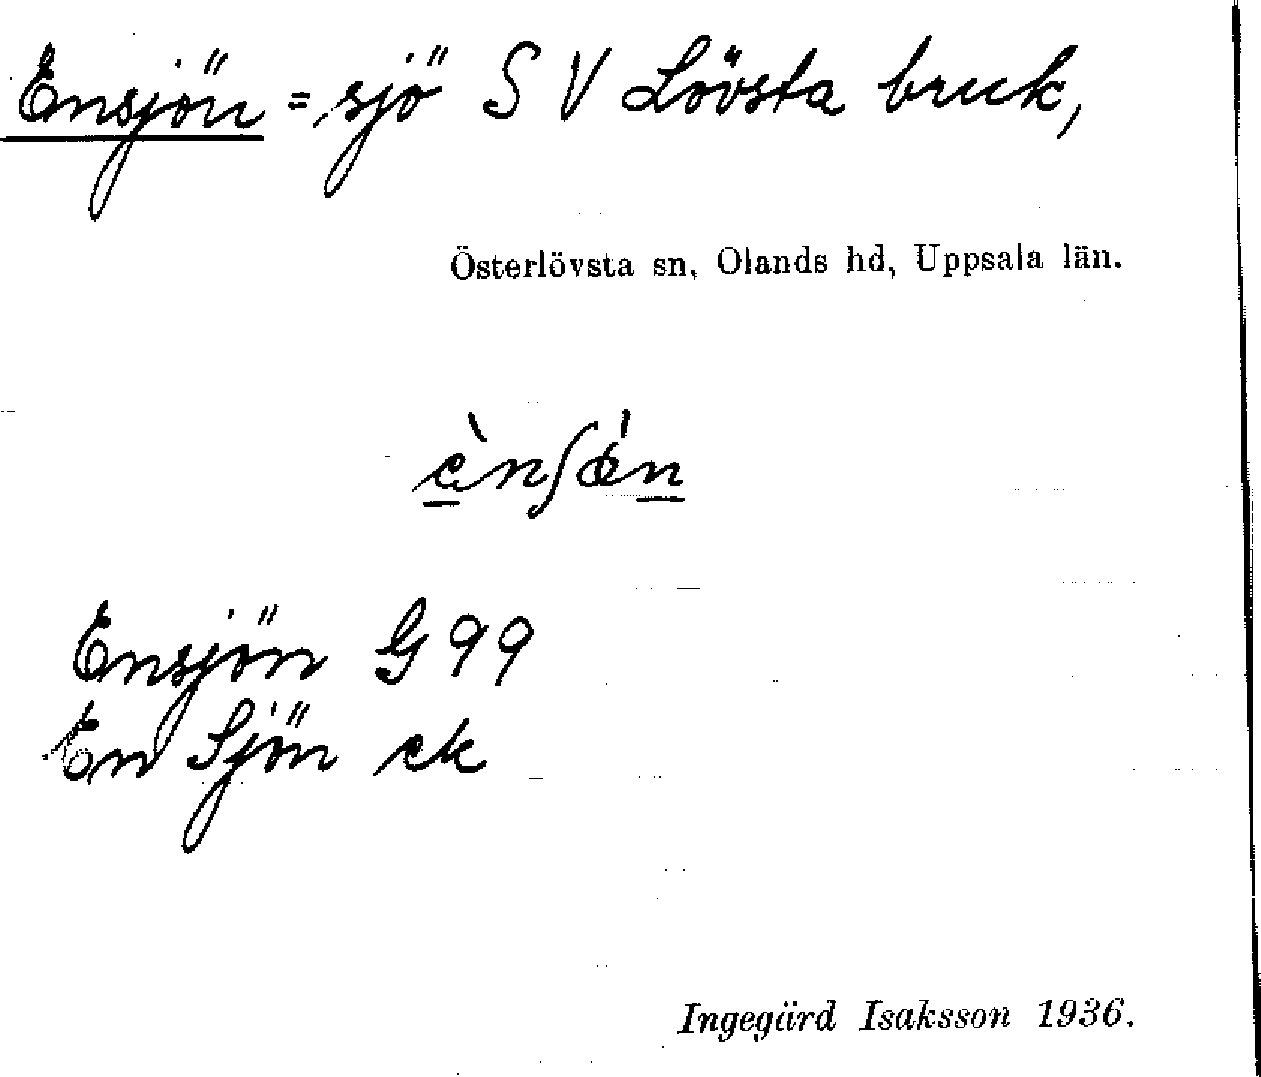 Ensjön = sjö S V Lövsta bruk,
Österlövsta sn, Olands hd, Uppsala län.
Ensjön G 99
En Sjön ek
Ingegärd Isaksson 1936.